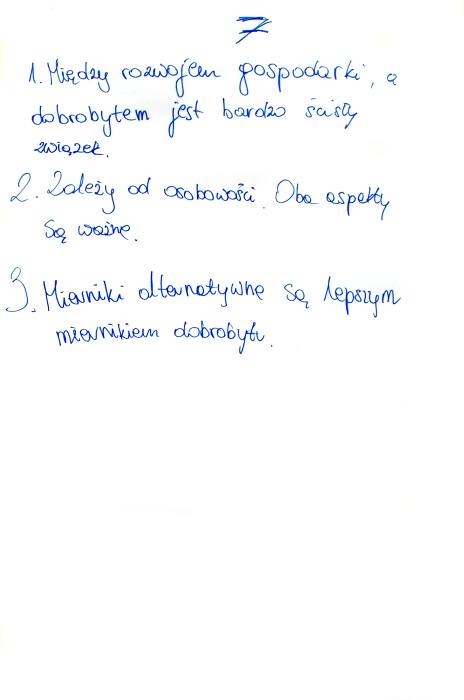 7
1. Między rozwojem gospodarki, a
dobrobytem jest bardzo ścisły
związek.
2. Zależy od osobowości. Oba aspekty
są ważne.
3. Mierniki alternatywne są lepszym
miernikiem dobrobytu.